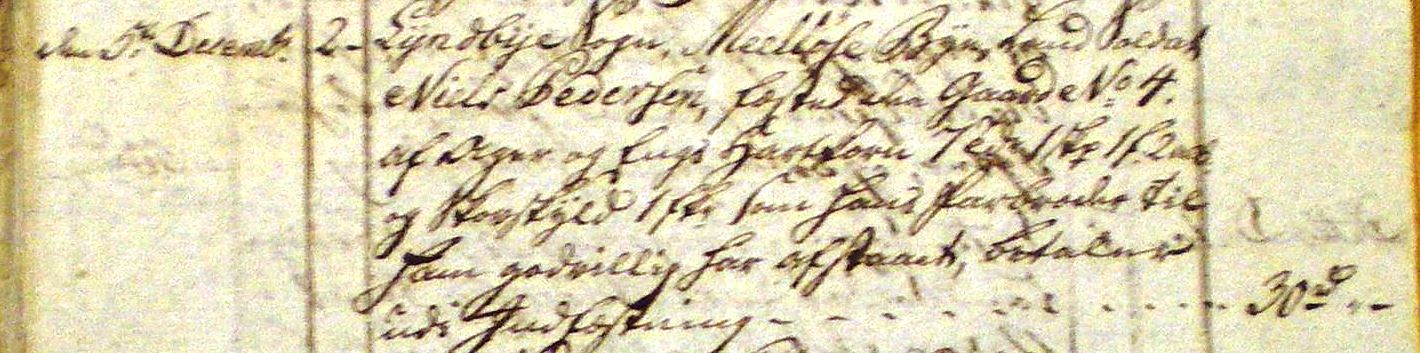 den 5te Decemb: 2 - Lyndbye Sogn, Meelløse Bye, Land Soldat
Niels Pedersen, fæsted den Gaard No 4.
af Ager og Engs Hartkorn 7 Tdr 1 Skp 1 f. 2 alb
og Skovskyld 1 fkr som hans Farbroder til
ham godvillig har afstaaet, betaler
udi Indfæstning - - - - - - - - 30 d - -